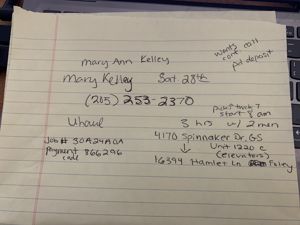 wants
conf call
pd deposit
Mary Ann Kelley
Mary Kelley Sat 28th
(205) 253-2370
Uhaul
Job# 30A24A0A
Payment code 866296
start 8 am
3 hrs w/ 2 men
4170 Spinnaker Dr, GS
↓ Unit 1220 C
(elevators)
16394 Hamlet Ln Foley